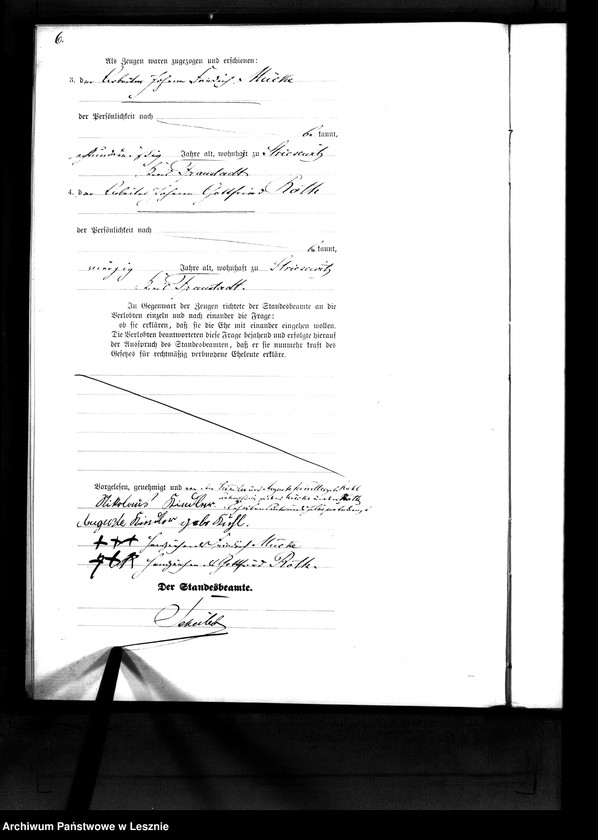 6.
Als Zeugen waren zugezogen und erschienen:
3. der Arbeiter Johann Friedrich Mücke
der Persönlichkeit nach
be kannt,
Jahre alt, wohnhaft zu Striesewitz
Kreis Fraustadt
4. der Arbeiter Johann Gottfried Roth
der Persönlichkeit nach
be kannt,
vierzig Jahre alt, wohnhaft zu Striesewitz
Kreis Fraustadt.
In Gegenwart der Zeugen richtete der Standesbeamte an die
Verlobten einzeln und nach einander die Frage:
ob sie erklären, daß sie die Ehe mit einander eingehen wollen.
Die Verlobten beantworteten diese Frage bejahend und erfolgte hierauf
der Ausspruch des Standesbeamten, daß er sie nunmehr kraft des
Gesetzes für rechtmäßig verbundene Eheleute erkläre.
Vorgelesen, genehmigt und von den
Nikolaus Kindler
Auguste Kindler geb. Kühl
+++ Handzeichen des Friedrich Mücke
+++ Handzeichen des Gottfried Roth.
Der Standesbeamte.
Archiwum Państwowe w Lesznie